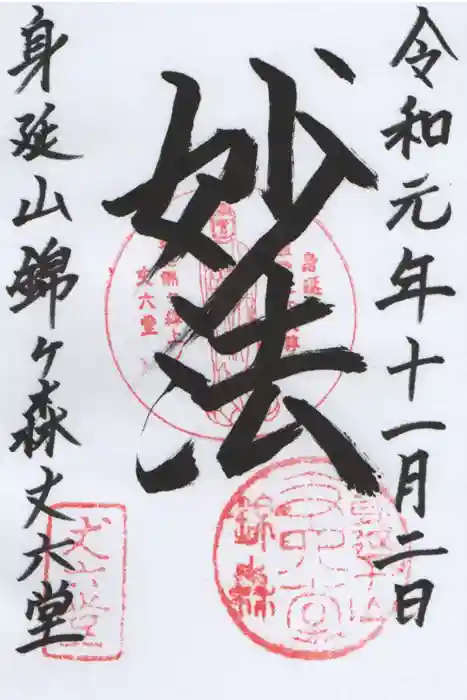 令和元年十一月二日
妙法
身延山錦ヶ森丈六堂
丈六堂